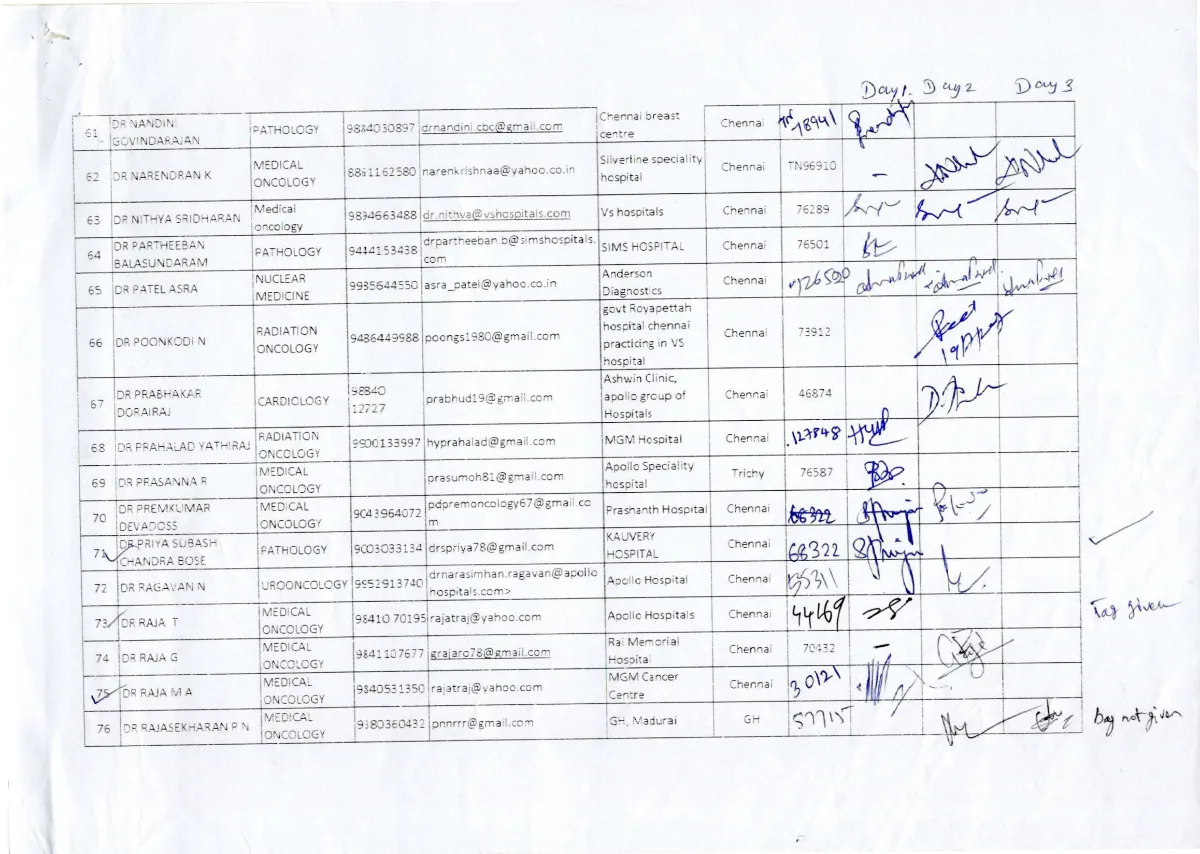 Day 1. Day 2 Day 3
61 DR NANDINI GOVINDARAJAN PATHOLOGY 9884030897 drnandini.cbc@gmail.com Chennai breast centre Chennai TN 78941
62 DR NARENDRAN K MEDICAL ONCOLOGY 8861162580 narenkrishnaa@yahoo.co.in Silverline speciality hospital Chennai TN96910 -
63 DR NITHYA SRIDHARAN Medical oncology 9894663488 dr.nithya@vshospitals.com Vs hospitals Chennai 76289
64 DR PARTHEEBAN BALASUNDARAM PATHOLOGY 9444153438 drpartheeban.b@simshospitals.com SIMS HOSPITAL Chennai 76501
65 DR PATEL ASRA NUCLEAR MEDICINE 9985644550 asra_patel@yahoo.co.in Anderson Diagnostics Chennai
66 DR POONKODI N RADIATION ONCOLOGY 9486449988 poongs1980@gmail.com govt Royapettah hospital chennai practicing in VS hospital Chennai 73912
67 DR PRABHAKAR DORAIRAJ CARDIOLOGY 98840 12727 prabhud19@gmail.com Ashwin Clinic, apollo group of Hospitals Chennai 46874
68 DR PRAHALAD YATHIRAJ RADIATION ONCOLOGY 9900133997 hyprahalad@gmail.com MGM Hospital Chennai .127848
69 DR PRASANNA R MEDICAL ONCOLOGY prasumoh81@gmail.com Apollo Speciality hospital Trichy 76587
70 DR PREMKUMAR DEVADOSS MEDICAL ONCOLOGY 9043964072 pdpremoncology67@gmail.com Prashanth Hospital Chennai 68322
71 DR PRIYA SUBASH CHANDRA BOSE PATHOLOGY 9003033134 drspriya78@gmail.com KAUVERY HOSPITAL Chennai 68322
72 DR RAGAVAN N UROONCOLOGY 9952913740 drnarasimhan.ragavan@apollohospitals.com> Apollo Hospital Chennai 55311
73 DR RAJA T MEDICAL ONCOLOGY 98410 70195 rajatraj@yahoo.com Apollo Hospitals Chennai 44169 Tag given
74 DR RAJA G MEDICAL ONCOLOGY 9841107677 grajaro78@gmail.com Rai Memorial Hospital Chennai 70432 -
75 DR RAJA M A MEDICAL ONCOLOGY 9840531350 rajatraj@yahoo.com MGM Cancer Centre Chennai 30121
76 DR RAJASEKHARAN P N MEDICAL ONCOLOGY 9380360432 pnnrrr@gmail.com GH, Madurai GH 57715 Bag not given